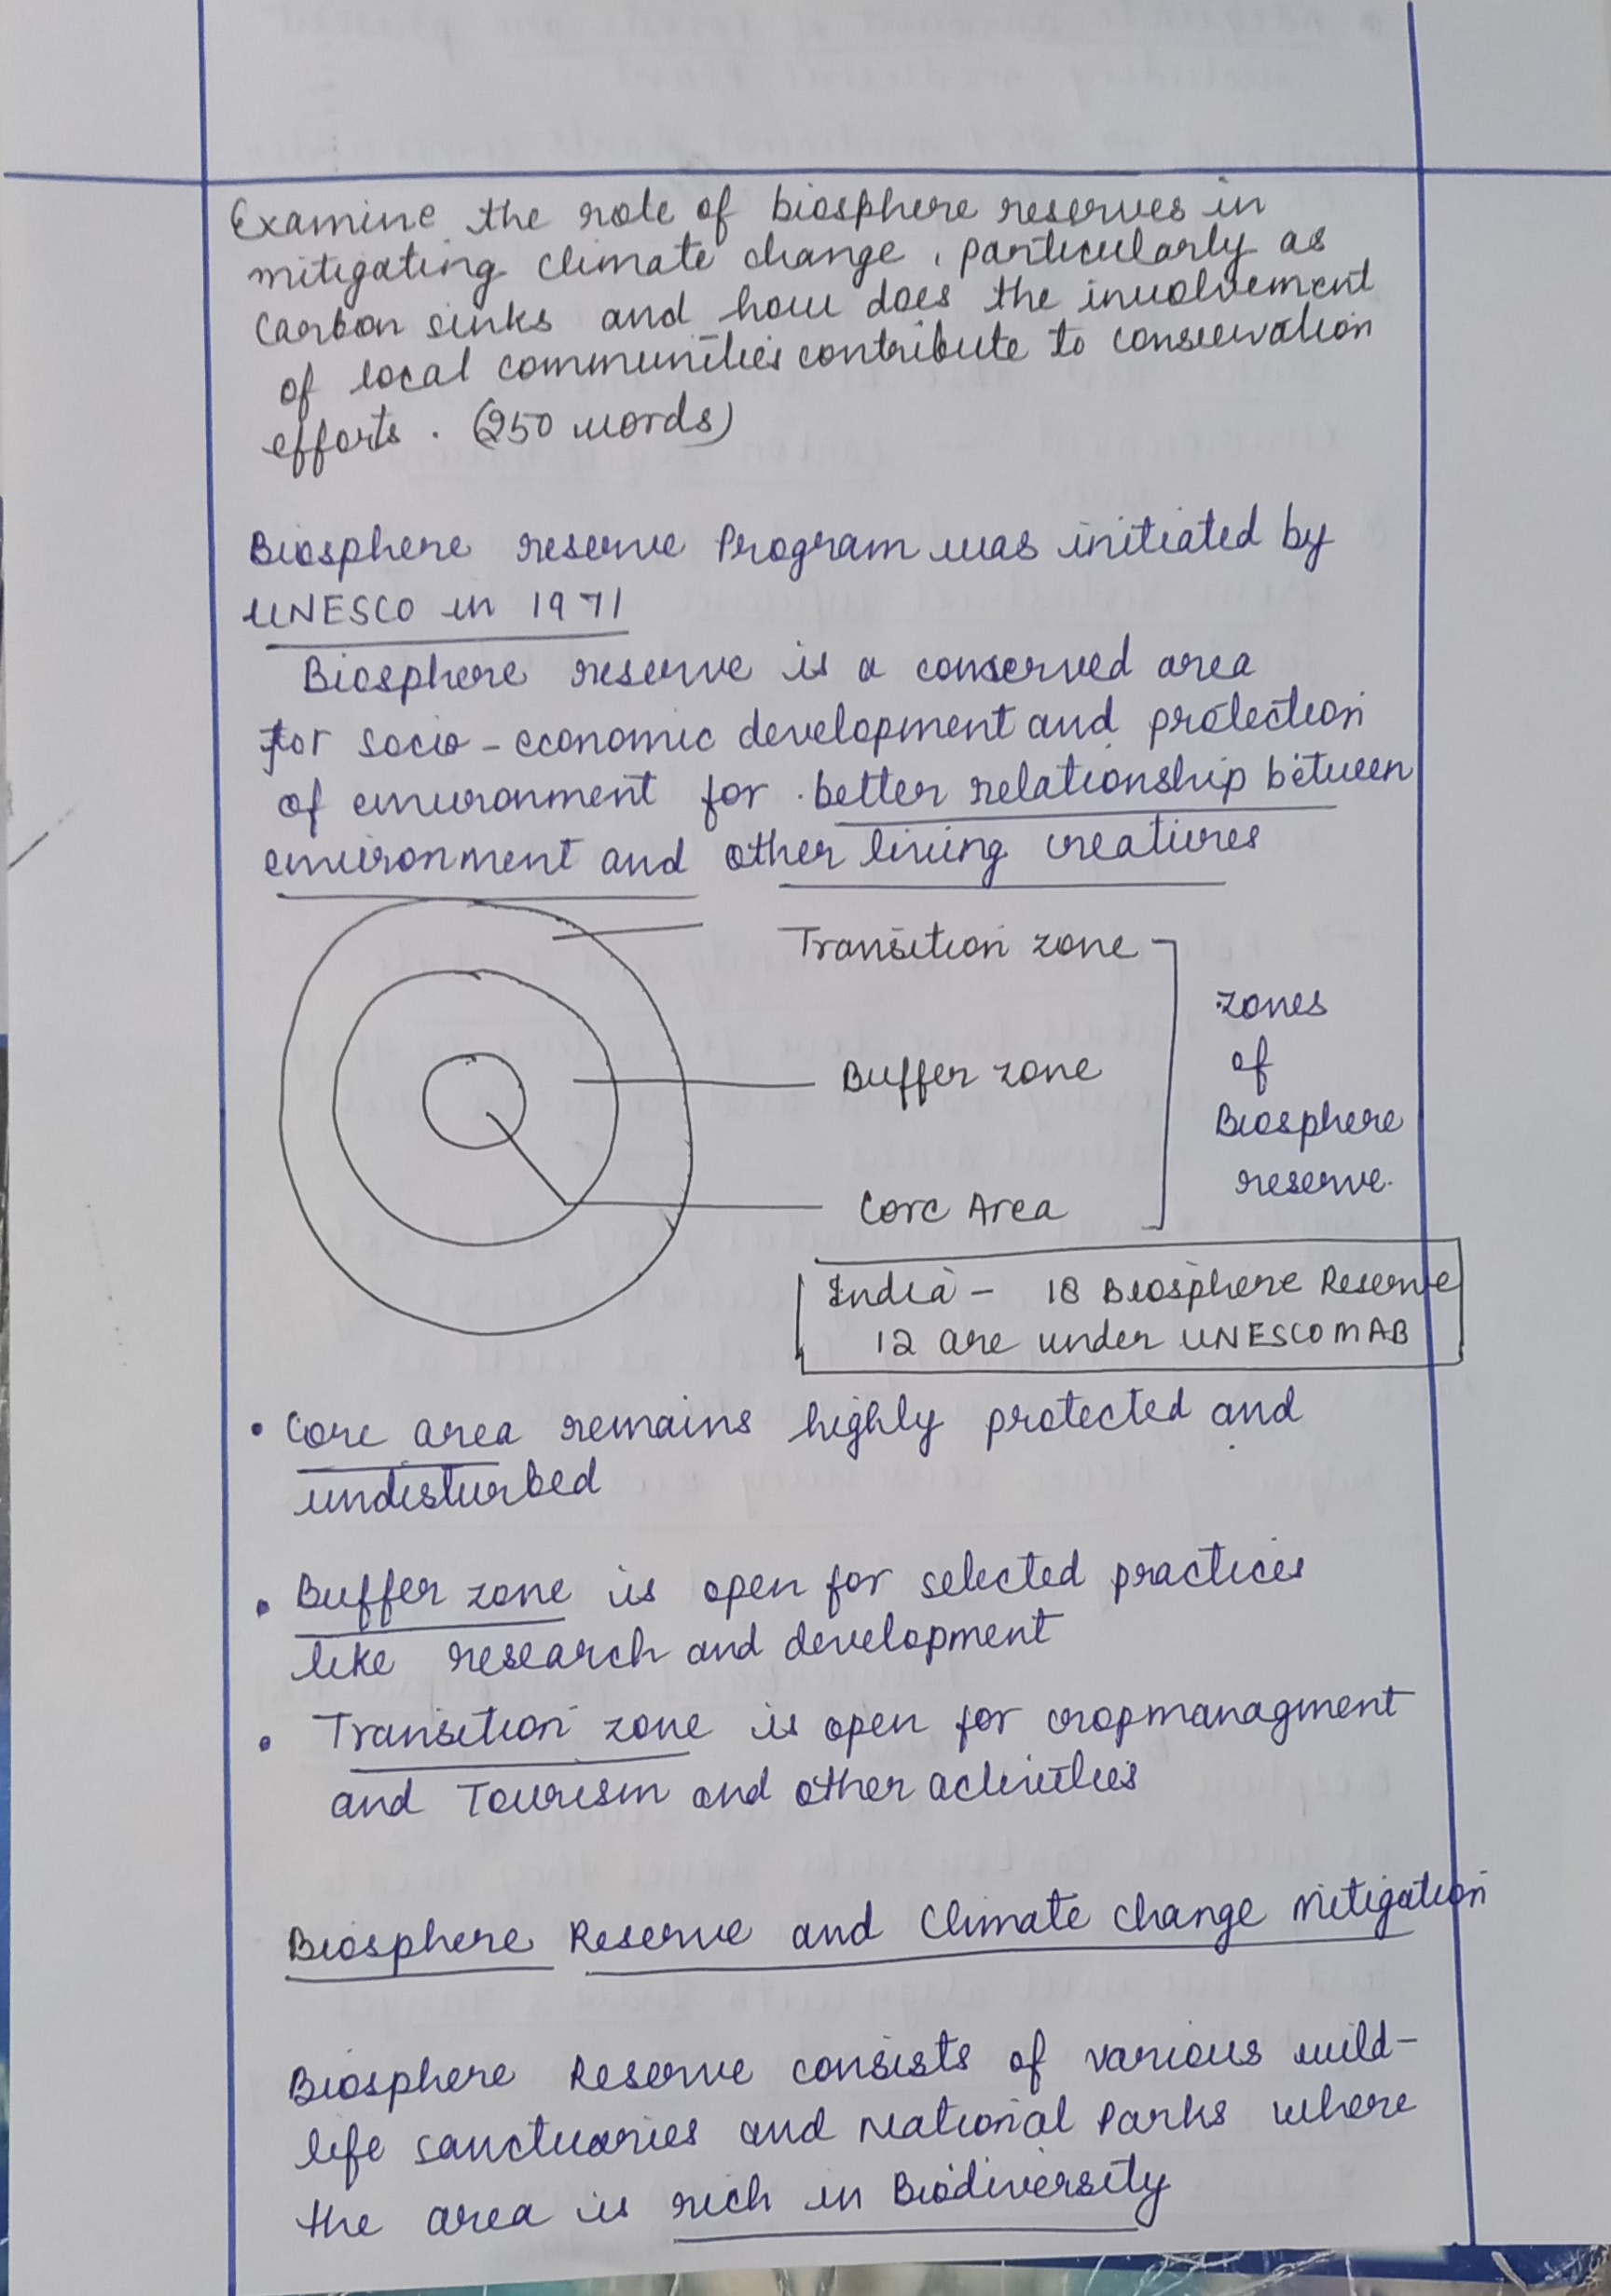 Examine the role of biosphere reserves in
mitigating climate change, particularly as
carbon sinks and how does the involvement
of local communities contribute to conservation
efforts. (250 words)
Biosphere reserve Program was initiated by
UNESCO in 1971
Biosphere reserve is a conserved area
for socio-economic development and protection
of environment for better relationship between
environment and other living creatures
Transition zone
Buffer zone
Core Area
zones
of
Biosphere
reserve.
India - 18 Biosphere Reserve
12 are under UNESCO MAB
• Core area remains highly protected and
undisturbed
• Buffer zone is open for selected practices
like research and development
• Transition zone is open for cropmanagment
and Tourism and other activities
Biosphere Reserve and Climate change mitigation
Biosphere Reserve consists of various wild-
life sanctuaries and National Parks where
the area is rich in Biodiversity